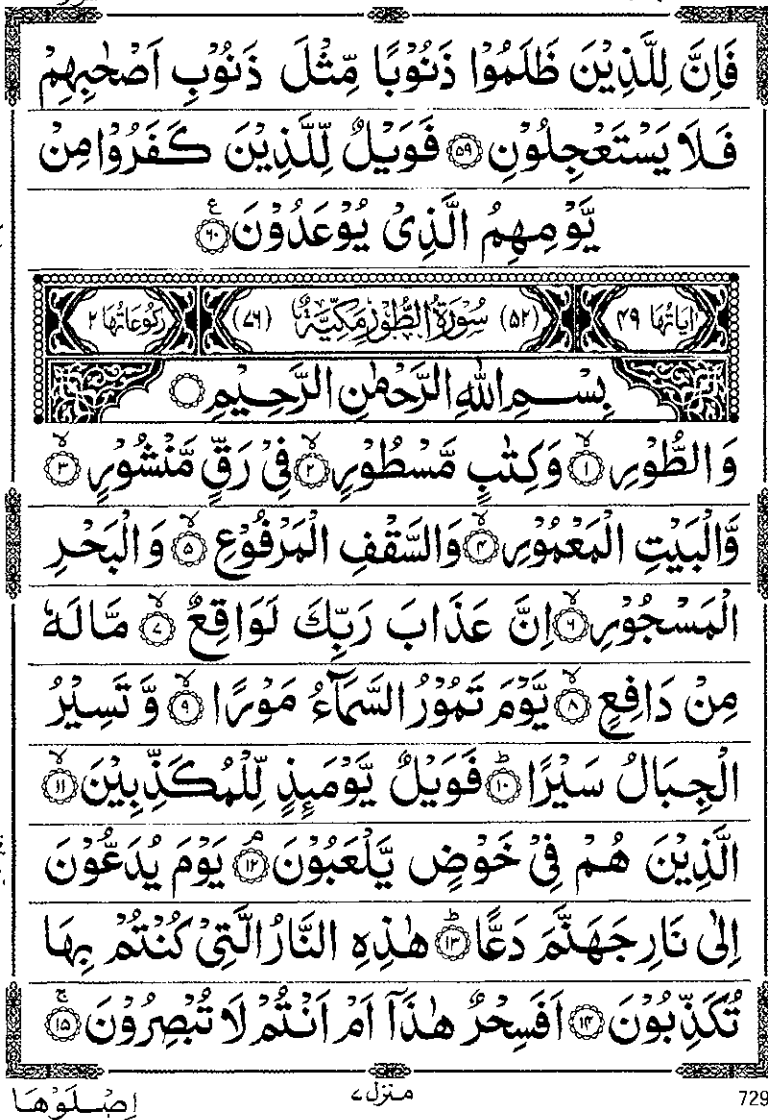 فَاِنَّ لِلَّذِیْنَ ظَلَمُوْا ذَنُوْبًا مِّثْلَ ذَنُوْبِ اَصْحٰبِهِمْ
فَلَا یَسْتَعْجِلُوْنِ ﴿۵۹﴾ فَوَیْلٌ لِّلَّذِیْنَ كَفَرُوْا مِنْ
یَّوْمِهِمُ الَّذِیْ یُوْعَدُوْنَ ﴿۶۰﴾ ع
اٰیَاتُهَا ۴۹ (۵۲) سُوْرَةُ الطُّوْرِ مَكِّیَّةٌ (۷۶) رُكُوْعَاتُهَا ۲
بِسْمِ اللّٰهِ الرَّحْمٰنِ الرَّحِیْمِ
وَ الطُّوْرِ ﴿۱﴾ۙ وَكِتٰبٍ مَّسْطُوْرٍ ﴿۲﴾ۙ فِیْ رَقٍّ مَّنْشُوْرٍ ﴿۳﴾ۙ
وَّالْبَیْتِ الْمَعْمُوْرِ ﴿۴﴾ۙ وَالسَّقْفِ الْمَرْفُوْعِ ﴿۵﴾ۙ وَ الْبَحْرِ
الْمَسْجُوْرِ ﴿۶﴾ۙ اِنَّ عَذَابَ رَبِّكَ لَوَاقِعٌ ﴿۷﴾ۙ مَّا لَهٗ
مِنْ دَافِعٍ ﴿۸﴾ۙ یَّوْمَ تَمُوْرُ السَّمَآءُ مَوْرًا ﴿۹﴾ۙ وَّ تَسِیْرُ
الْجِبَالُ سَیْرًا ﴿۱۰﴾ؕ فَوَیْلٌ یَّوْمَىِٕذٍ لِّلْمُكَذِّبِیْنَ ﴿۱۱﴾ۙ
الَّذِیْنَ هُمْ فِیْ خَوْضٍ یَّلْعَبُوْنَ ﴿۱۲﴾ۘ یَوْمَ یُدَعُّوْنَ
اِلٰی نَارِ جَهَنَّمَ دَعًّا ﴿۱۳﴾ؕ هٰذِهِ النَّارُ الَّتِیْ كُنْتُمْ بِهَا
تُكَذِّبُوْنَ ﴿۱۴﴾ اَفَسِحْرٌ هٰذَاۤ اَمْ اَنْتُمْ لَا تُبْصِرُوْنَ ﴿۱۵﴾ۚ
729 منزل۷ اِصْلَوْهَا